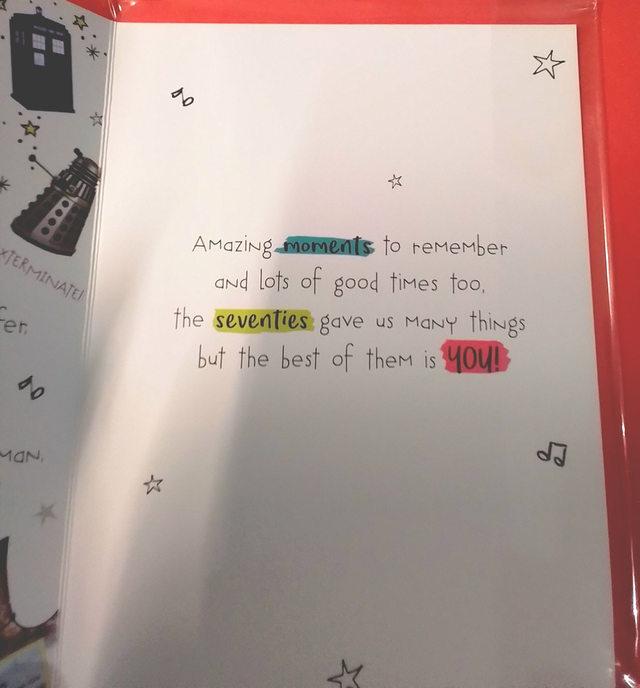 EXTERMINATE!
fer,
MAN,
Amazing moments to remember
and lots of good times too,
the seventies gave us many things
but the best of them is YOU!